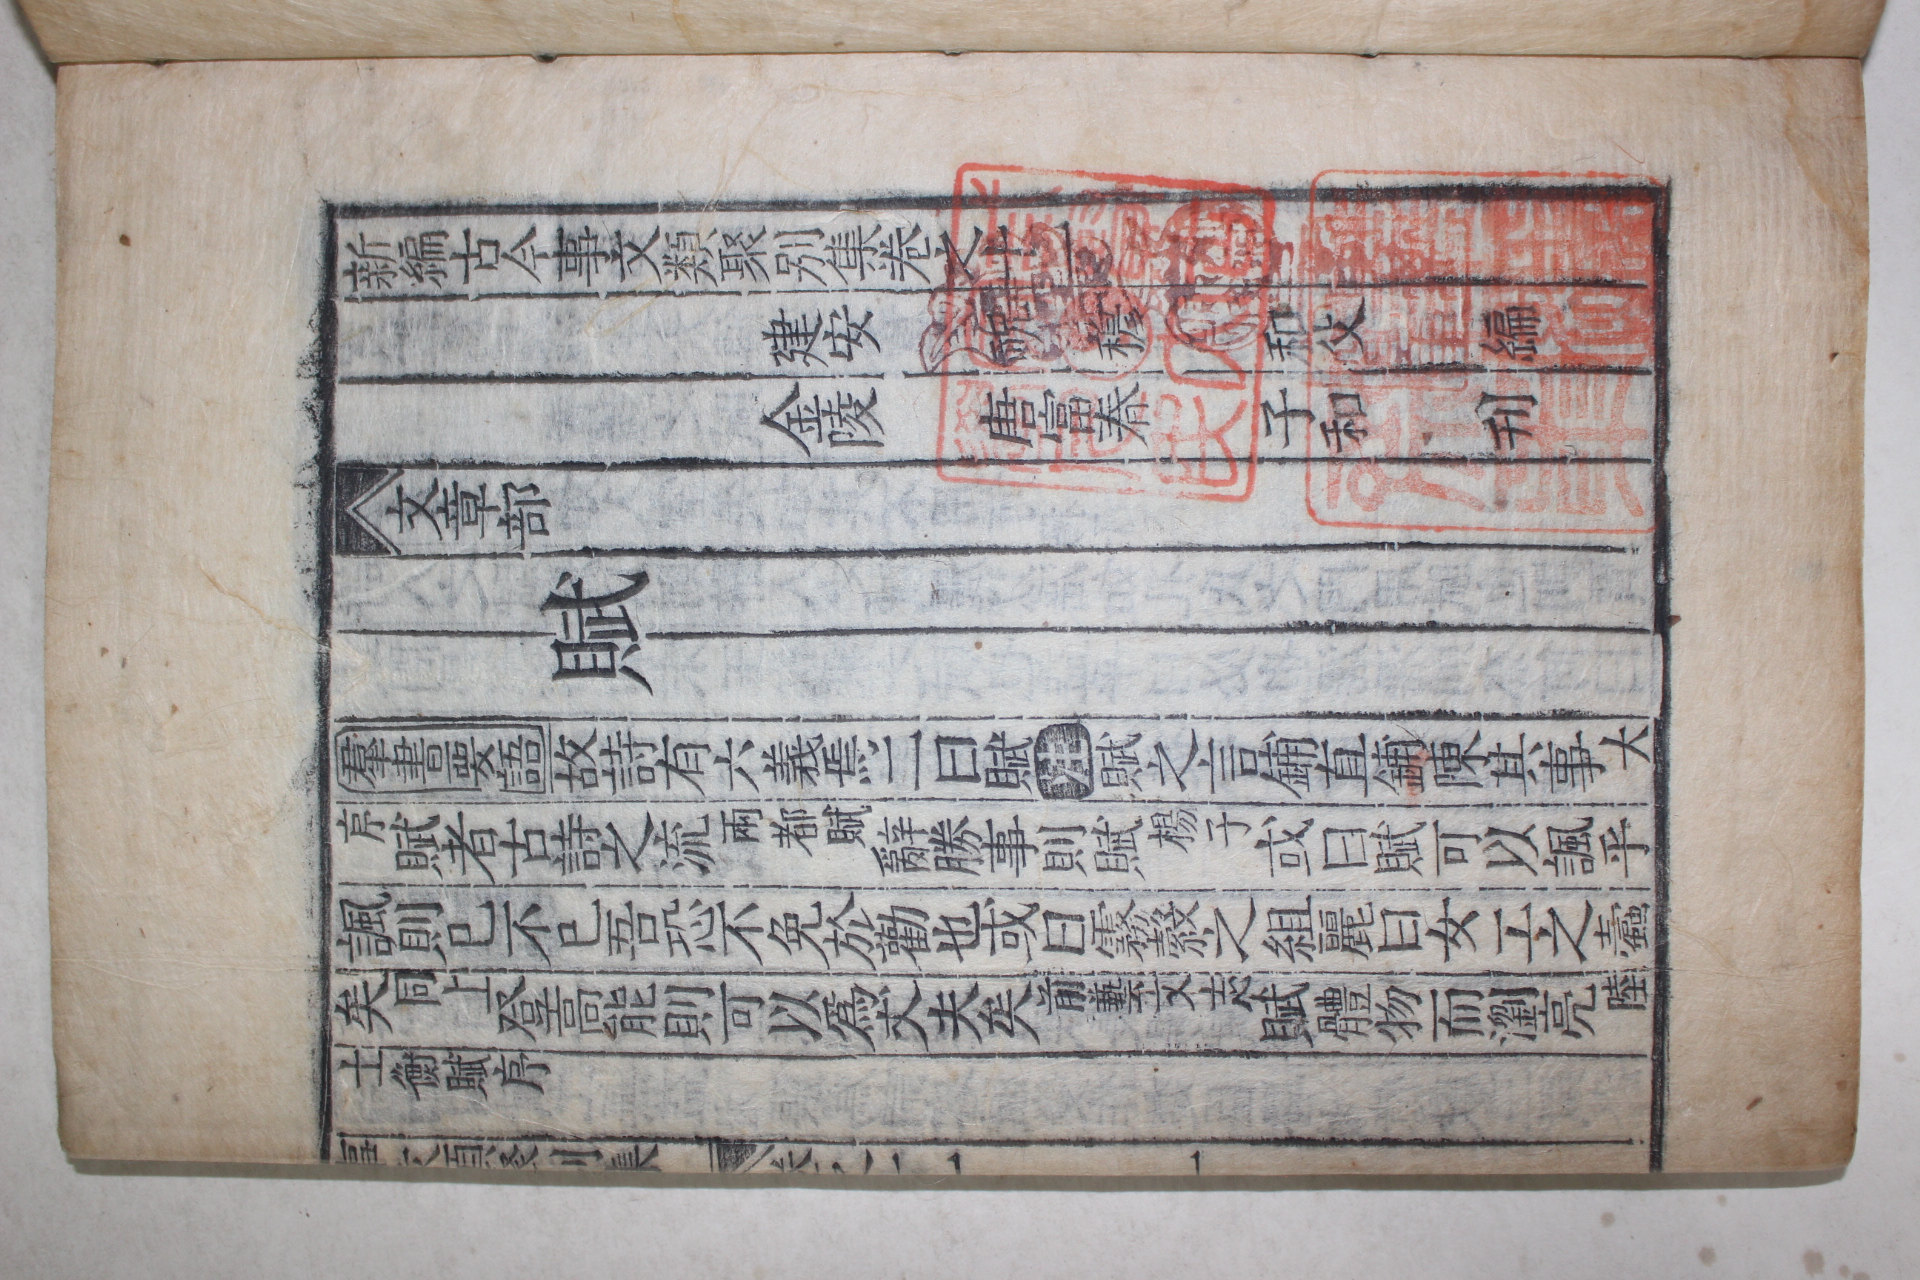 新編古今事文類聚別集卷之十一
建安 祝穆 和父 編
金陵 唐富春 子和 刊
文章部
賦
羣書要語故詩有六義焉二曰賦注賦之言鋪直鋪陳其事大
序賦者古詩之流兩都賦辭勝事則賦楊子或曰賦可以諷乎
諷則已不已吾恐不免於勸也或曰霧縠之組麗曰女工之蠹
矣同上登高能則可以爲大夫矣前漢藝文志賦體物而瀏亮陸
士衡賦序